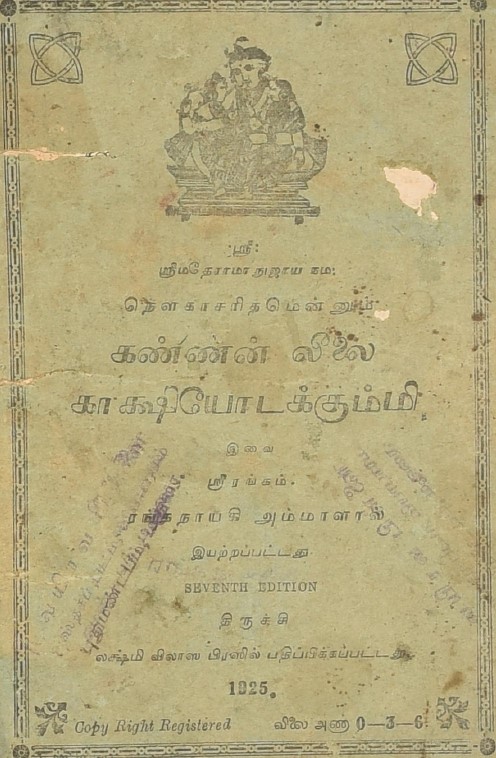 ஸ்ரீ:
ஸ்ரீமதேராமாநுஜாய நம:
நௌகாசரிதமென்னும்
கண்ணன் லீலை
காக்ஷியோடக்கும்மி.
இவை
ஸ்ரீரங்கம்.
ரங்கநாயகி அம்மாளால்
இயற்றப்பட்டது
SEVENTH EDITION
திருச்சி
லக்ஷ்மி விலாஸ பிரஸில் பதிப்பிக்கப்பட்டது.
1925.
Copy Right Registered விலை அணா 0-3-6